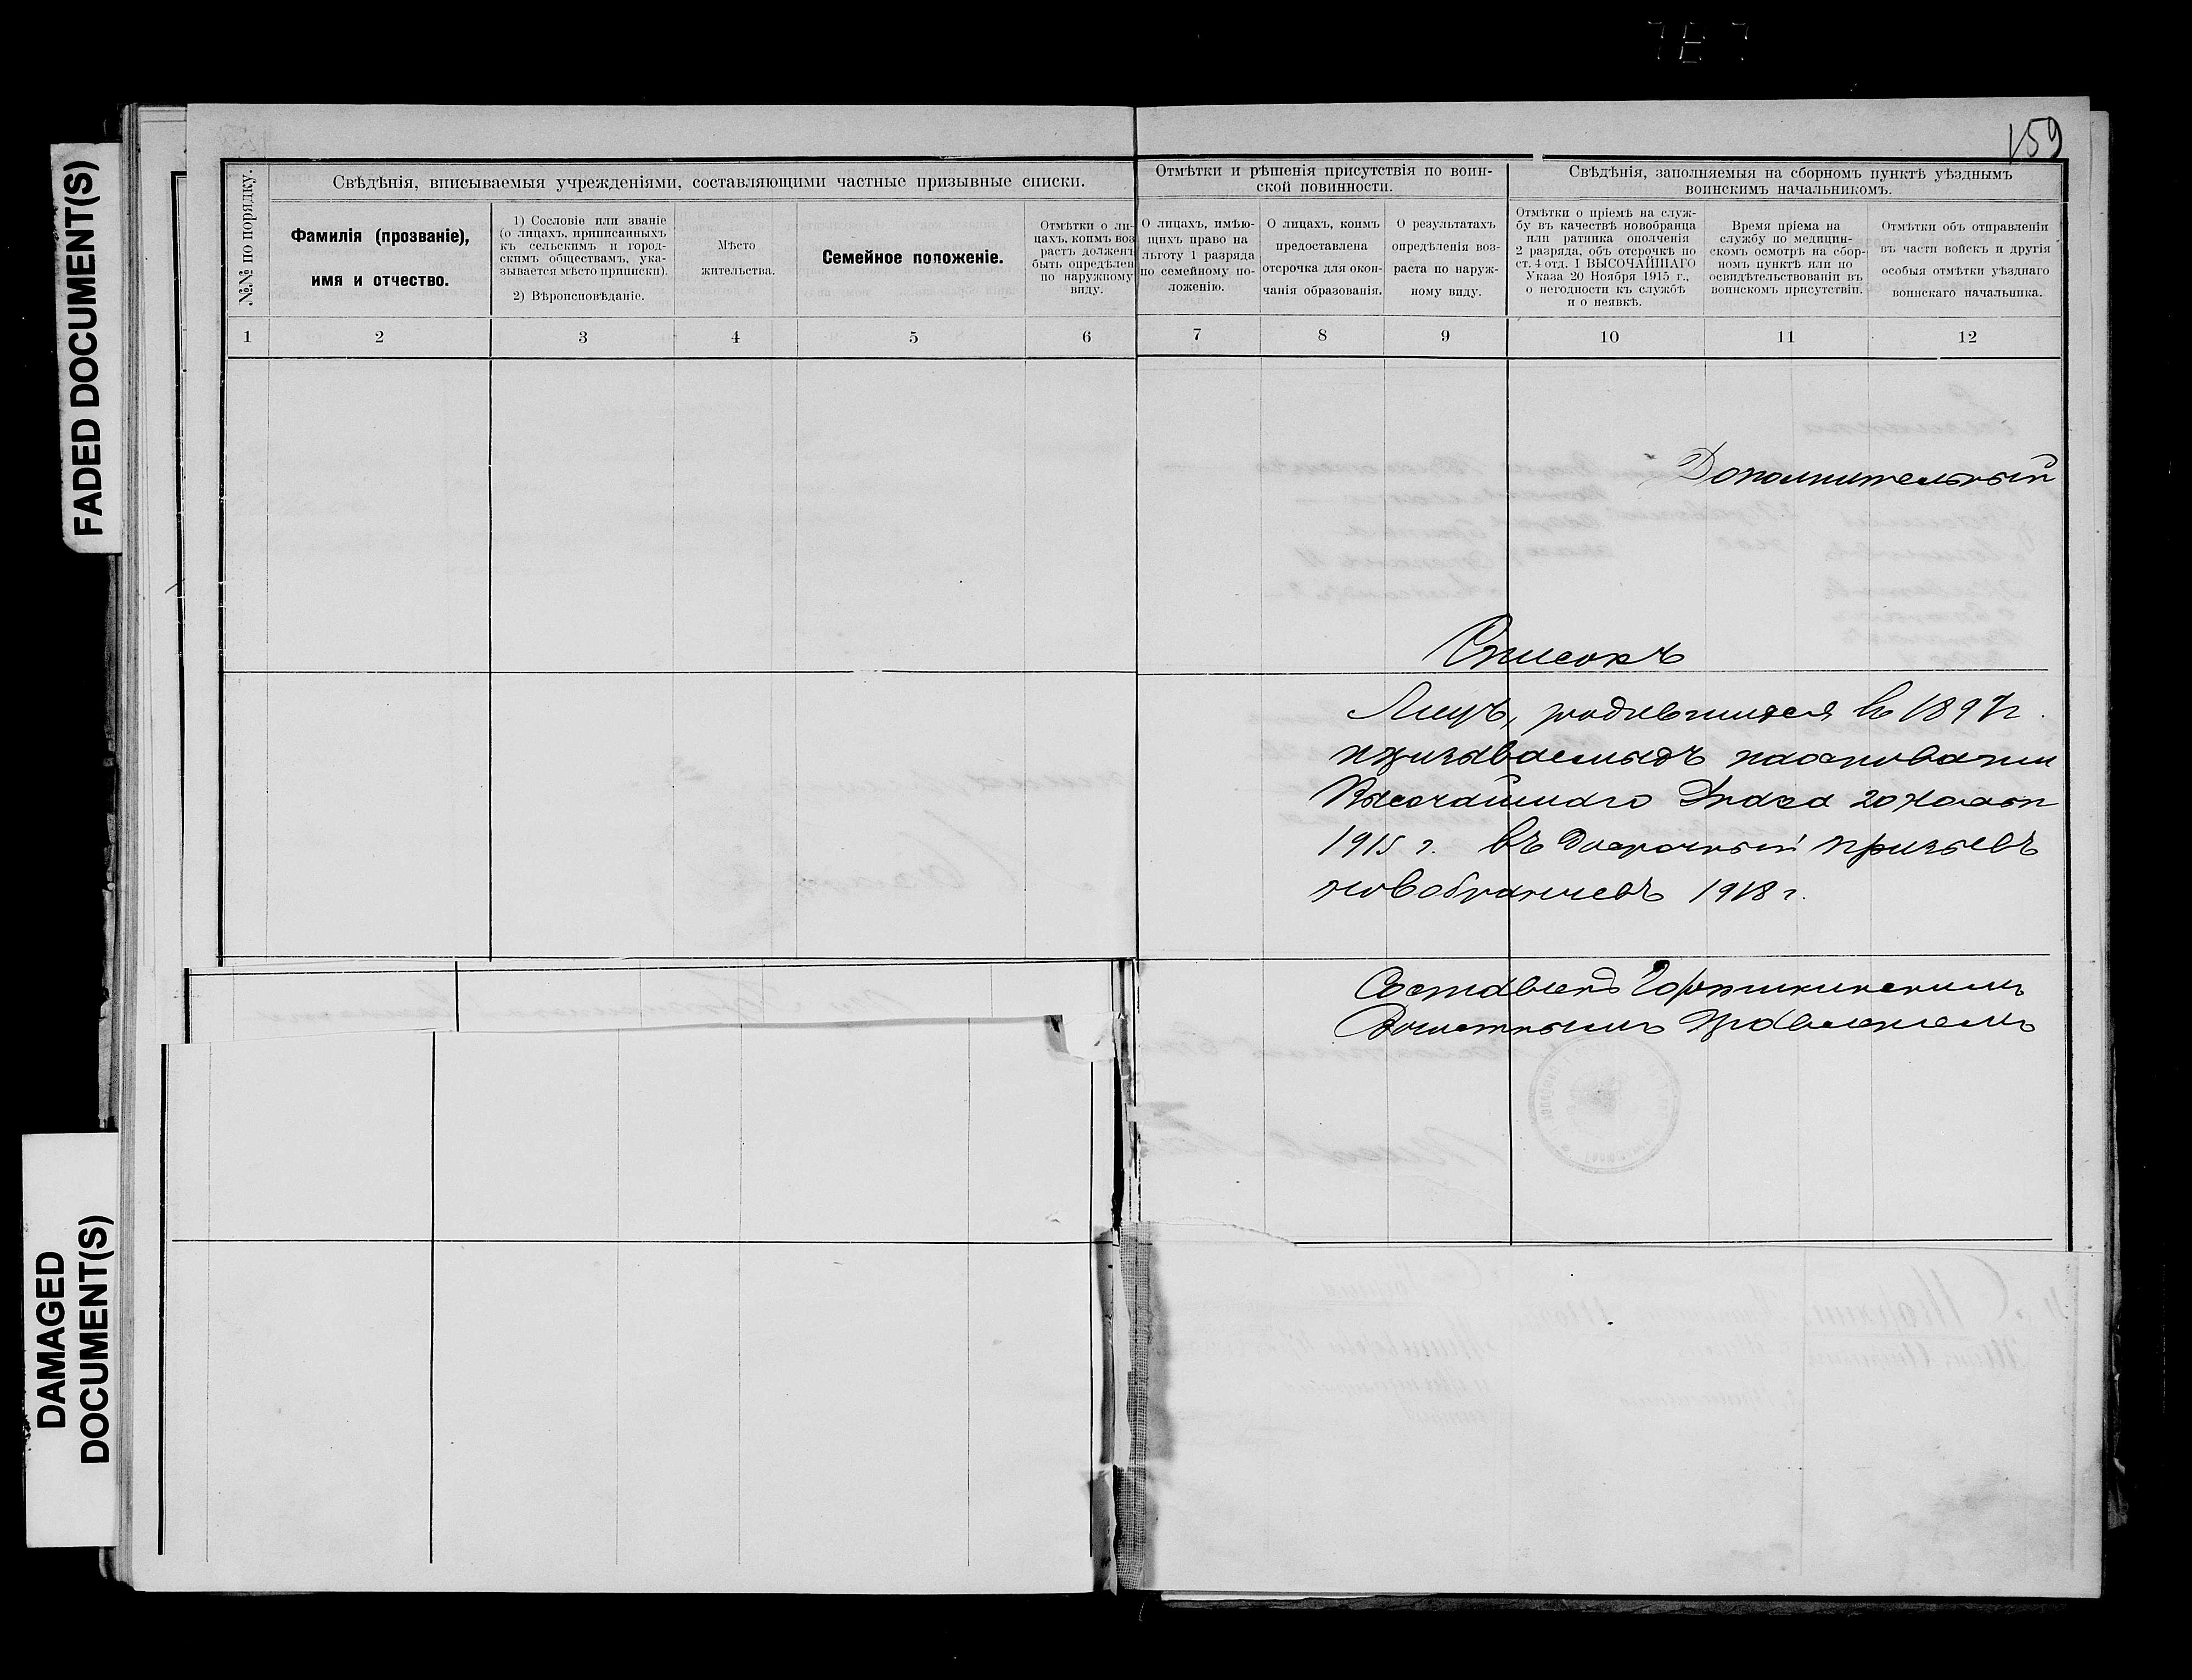 159
FADED DOCUMENT(S)
DAMAGED
DOCUMENT(S)
№№ по порядку.
Свѣдѣнія, вписываемыя учрежденіями, составляющими частные призывные списки.
Фамилія (прозваніе),
имя и отчество.
1) Сословіе или званіе
(о лицахъ, приписанныхъ
къ сельскимъ и город-
скимъ обществамъ, ука-
зывается мѣсто приписки).
2) Вѣроисповѣданіе.
Мѣсто
жительства.
Семейное положеніе.
Отмѣтки о ли-
цахъ, коимъ воз
растъ долженъ
быть опредѣлен
по наружному
виду.
Отмѣтки и рѣшенія присутствія по воин-
ской повинности.
О лицахъ, имѣю-
щихъ право на
льготу 1 разряда
по семейному по-
ложенію.
О лицахъ, коимъ
предоставлена
отсрочка для окон-
чанія образованія.
О результатахъ
опредѣленія воз-
раста по наруж-
ному виду.
Свѣдѣнія, заполняемыя на сборномъ пунктѣ уѣзднымъ
воинскимъ начальникомъ.
Отмѣтки о пріемѣ на служ-
бу въ качествѣ новобранца
или ратника ополченія
2 разряда, объ отсрочкѣ по
ст. 4 отд. I ВЫСОЧАЙШАГО
Указа 20 Ноября 1915 г.,
о негодности къ службѣ
и о неявкѣ.
Время пріема на
службу по медицин-
скомъ осмотрѣ на сбор-
номъ пунктѣ или по
освидѣтельствованіи въ
воинскомъ присутствіи.
Отмѣтки объ отправленіи
въ части войскъ и другія
особыя отмѣтки уѣзднаго
воинскаго начальника.
1 2 3 4 5 6 7 8 9 10 11 12
Дополнительный
Списокъ
Лицъ, родившихся въ 1897г.
призываемыхъ наосновании
Высочайшаго Указа 20 Ноября
1915 г. въ досрочный призывъ
новобранцевъ 1918 г.
Составленъ
Волостнымъ Правлениемъ